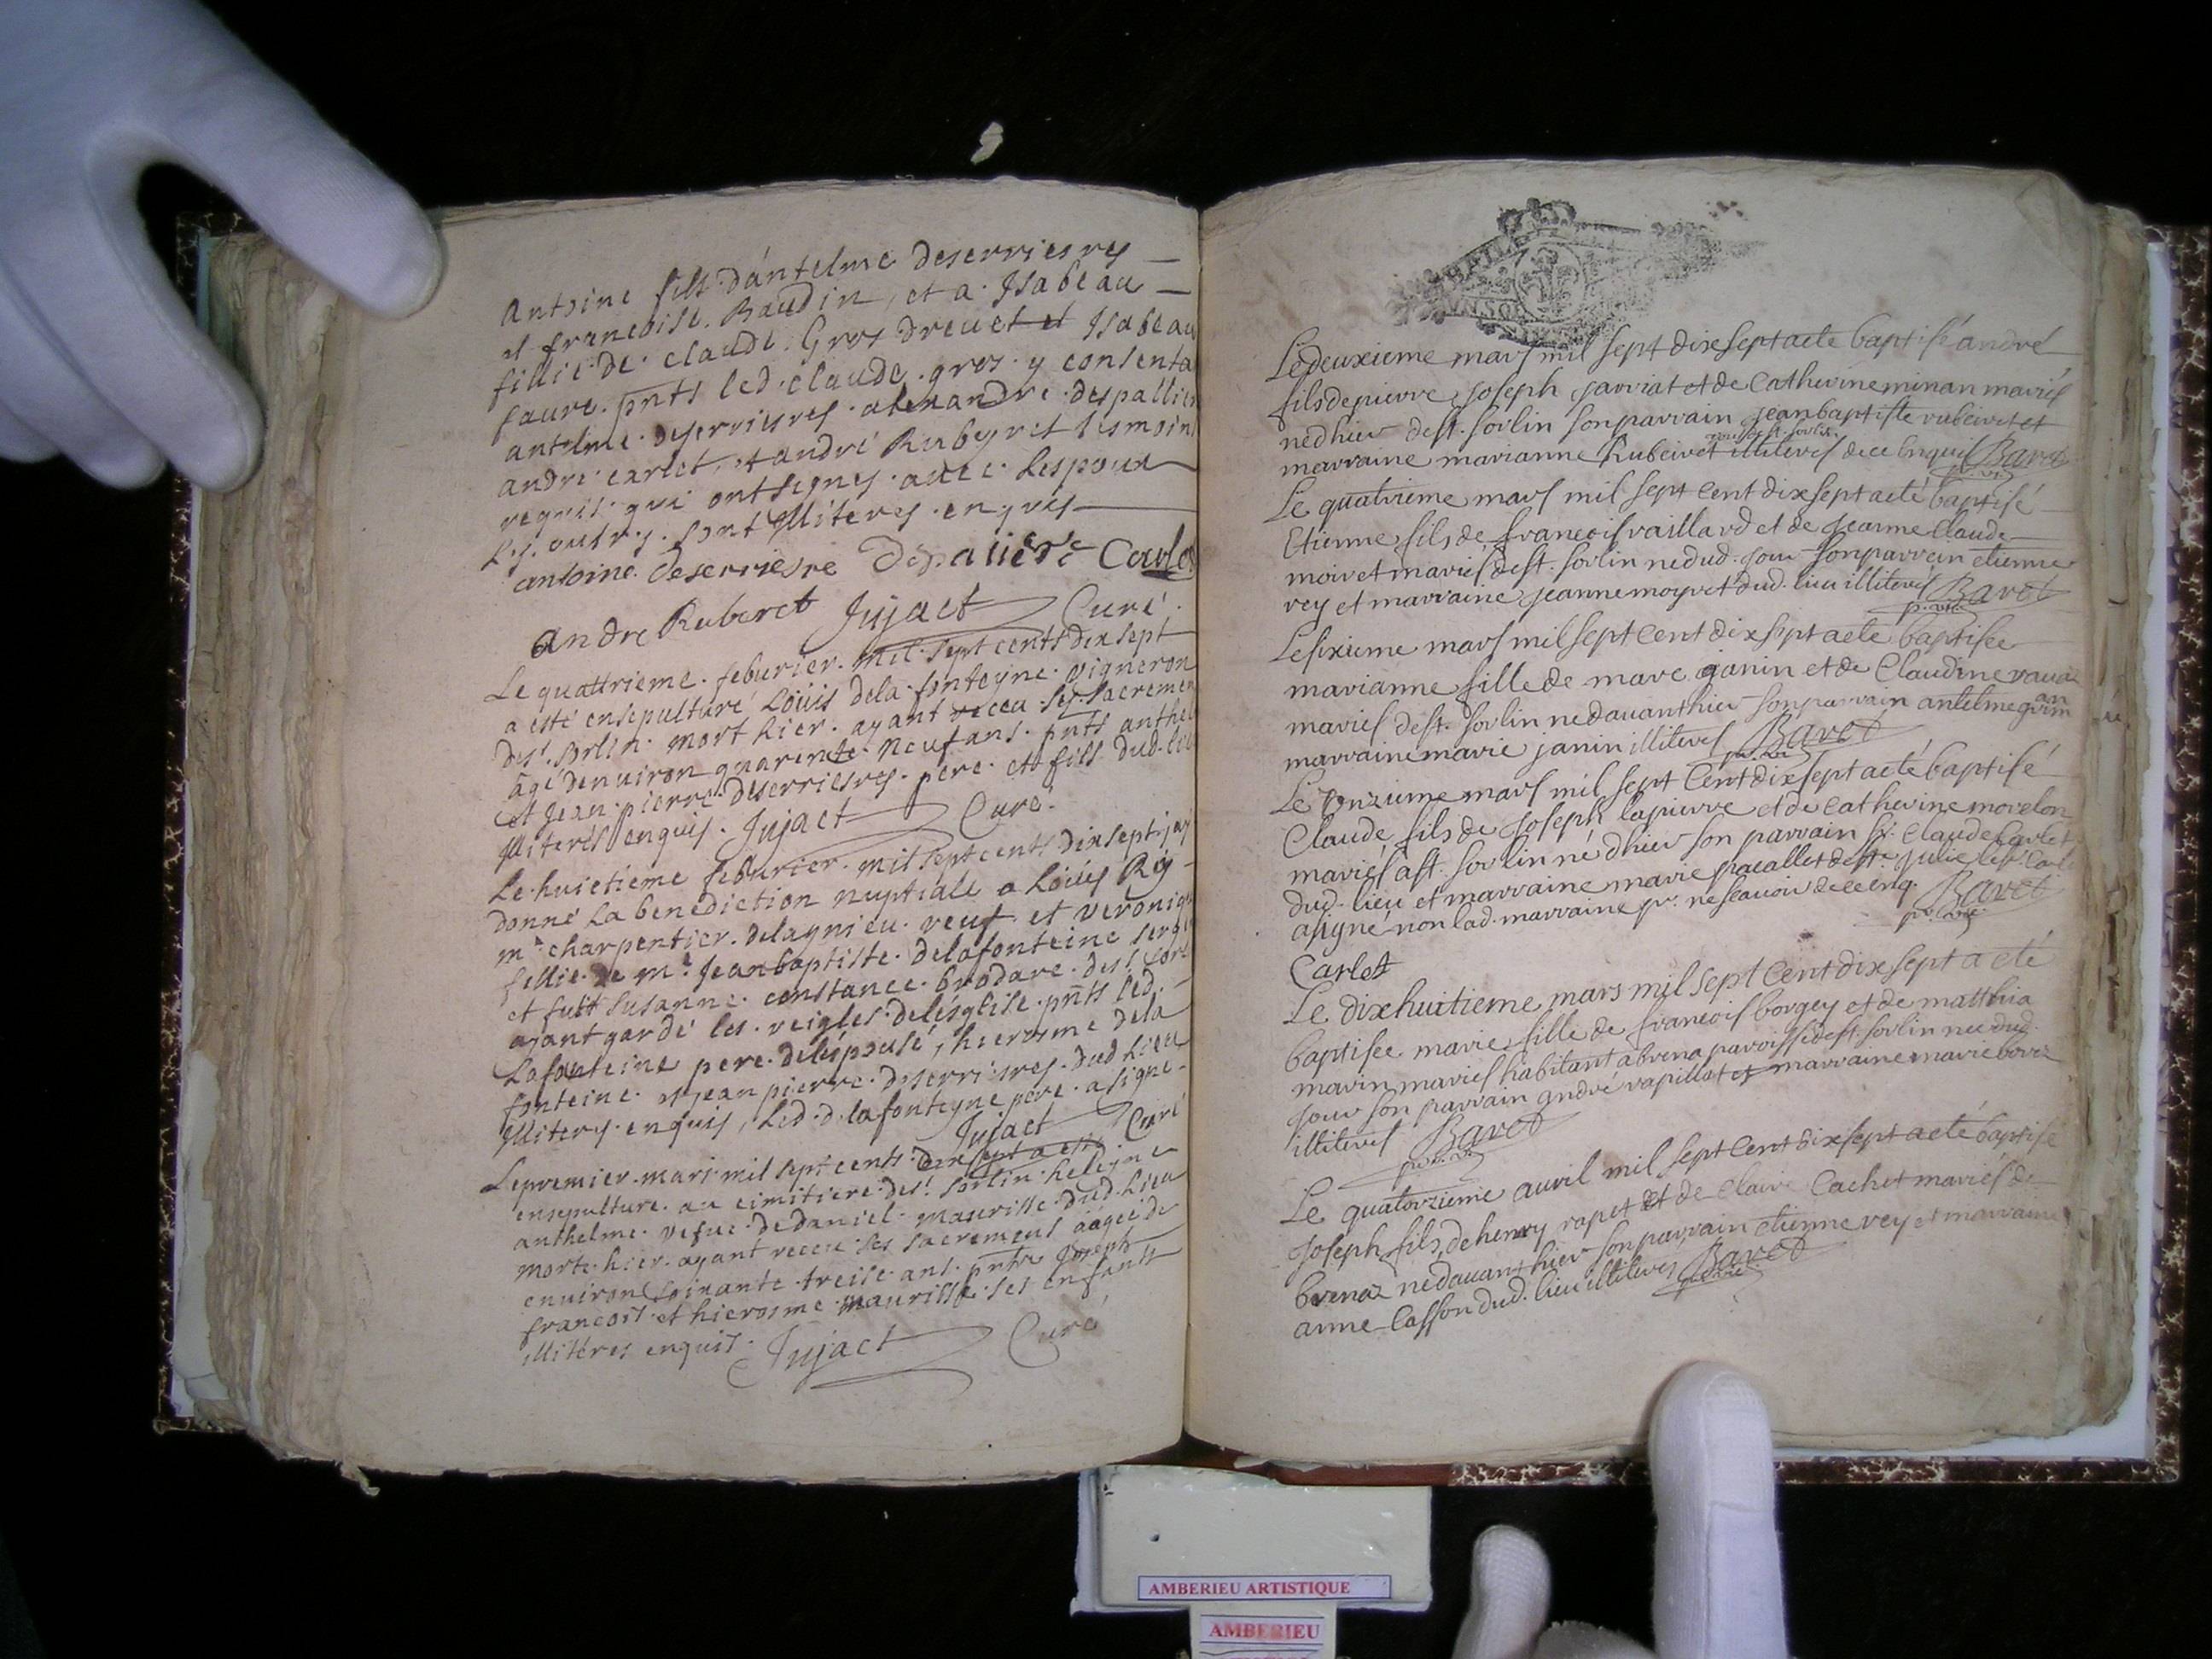 Antoine fils d'antelme deserriesres
et francoise. Baudin, et a. Isabeau
fillie de claude. Gros dreuet et Isabeau
faure. pnts led. claude. gros. y consenta
antelme. deserriesres. alexandre. despallier
andre carlet, et andré Rubeyret tesmoin
requis. qui ont signes. avec. Lespoux
Les. autres. sont illiteres. enquis
antoine. deserriesre Depaliere Carlet
andre Ruberet Jujact Curé.
Le quattrieme. feburier. mil. sept cents dix sept
a esté ensepulturé Loüis dela. fonteyne. vigneron
de st. sorlin. mort hier. ayant receu ses. sacremen
agé denuiron quarente. neuf ans. pnts anthel
et Jean. pierre. deserriesres. pere. et fils. dud. lieu
illiterés enquis. Jujact Curé.
Le. huictieme feburier. mil sept cents dix sept jay
donné La benediction nuptiale a Loüis Rey
me. charpentier. de lagnieu. veuf. et veroniqu
fillie. de me. Jean baptiste. delafonteine serge
et fut susanne. constance. brodare. de st. sorl
ayant garde les. reigles. de l'esglise. pnts led.
Lafonteine pere. de l'espousé, hierosme dela
fonteine. et Jean pierre. deserriesres. dud. Lieu
illiteres. enquis, Led. d. lafonteyne pere. a signe.
Jujact Curé
Le premier. mars mil sept cents. dix sept a esté
ensepulture. au cimitiere. de st. sorlin. heleyne
anthelme. vefue. de daniel. maurisse. dud. Lieu
morte. hier. ayant receu ses sacremens aagee de
enuiron soixante. treise. ans. pnts Joseph
francois. et hierosme. maurisse. ses enfants
illiteres enquis. Jujact Curé
Le deuxieme mars mil sept dixsept a ete baptisé andré
fils de pierre joseph jarriat et de Catherine minan mariés
ne d hier de st. sorlin son parrain jean baptiste rubeiret et
marraine marianne Rubeiret illiteres de ce enquis Baret
Le quatrieme mars mil sept cent dix sept a eté baptisé
Etienne fils de francois raillard et de jeanne claude
moiret mariés de st. sorlin ne dud. jour son parrain etienne
rey et marraine jeanne moyret dud. lieu illiterés Baret
p. vic.
Le sixieme mars mil sept cent dix sept a ete baptisee
marianne fille de marc janin et de Claudine
mariés de st. sorlin ne d'auant hier son parrain antelme
marraine marie janin illiteres Baret
Le onzieme mars mil sept Cent dix sept a eté baptisé
Claude fils de joseph lapierre et de catherine morelon
mariés a st. sorlin né d hier son parrain sr. Claude Carlet
dud. lieu et marraine marie pacallet de ste. julie
a signé non lad. marraine pr. ne scauoir de ce enq. Baret
Carlet
Le dixhuitieme mars mil sept Cent dix sept a eté
baptisee marie fille de francois borgey et de matthia
marin mariés habitant a brena paroisse de st. sorlin nee dud.
jour son parrain andré rapillot et marraine marie borez
illiteres Baret
Le quatorzieme auril mil sept cent dix sept a eté baptisé
joseph fils de henry rapet et de Claire Cachet mariés de
brenaz né dauant hier son parrain etienne rey et marraine
anne Casson dud. lieu illiterés Baret
AMBERIEU ARTISTIQUE
AMBERIEU